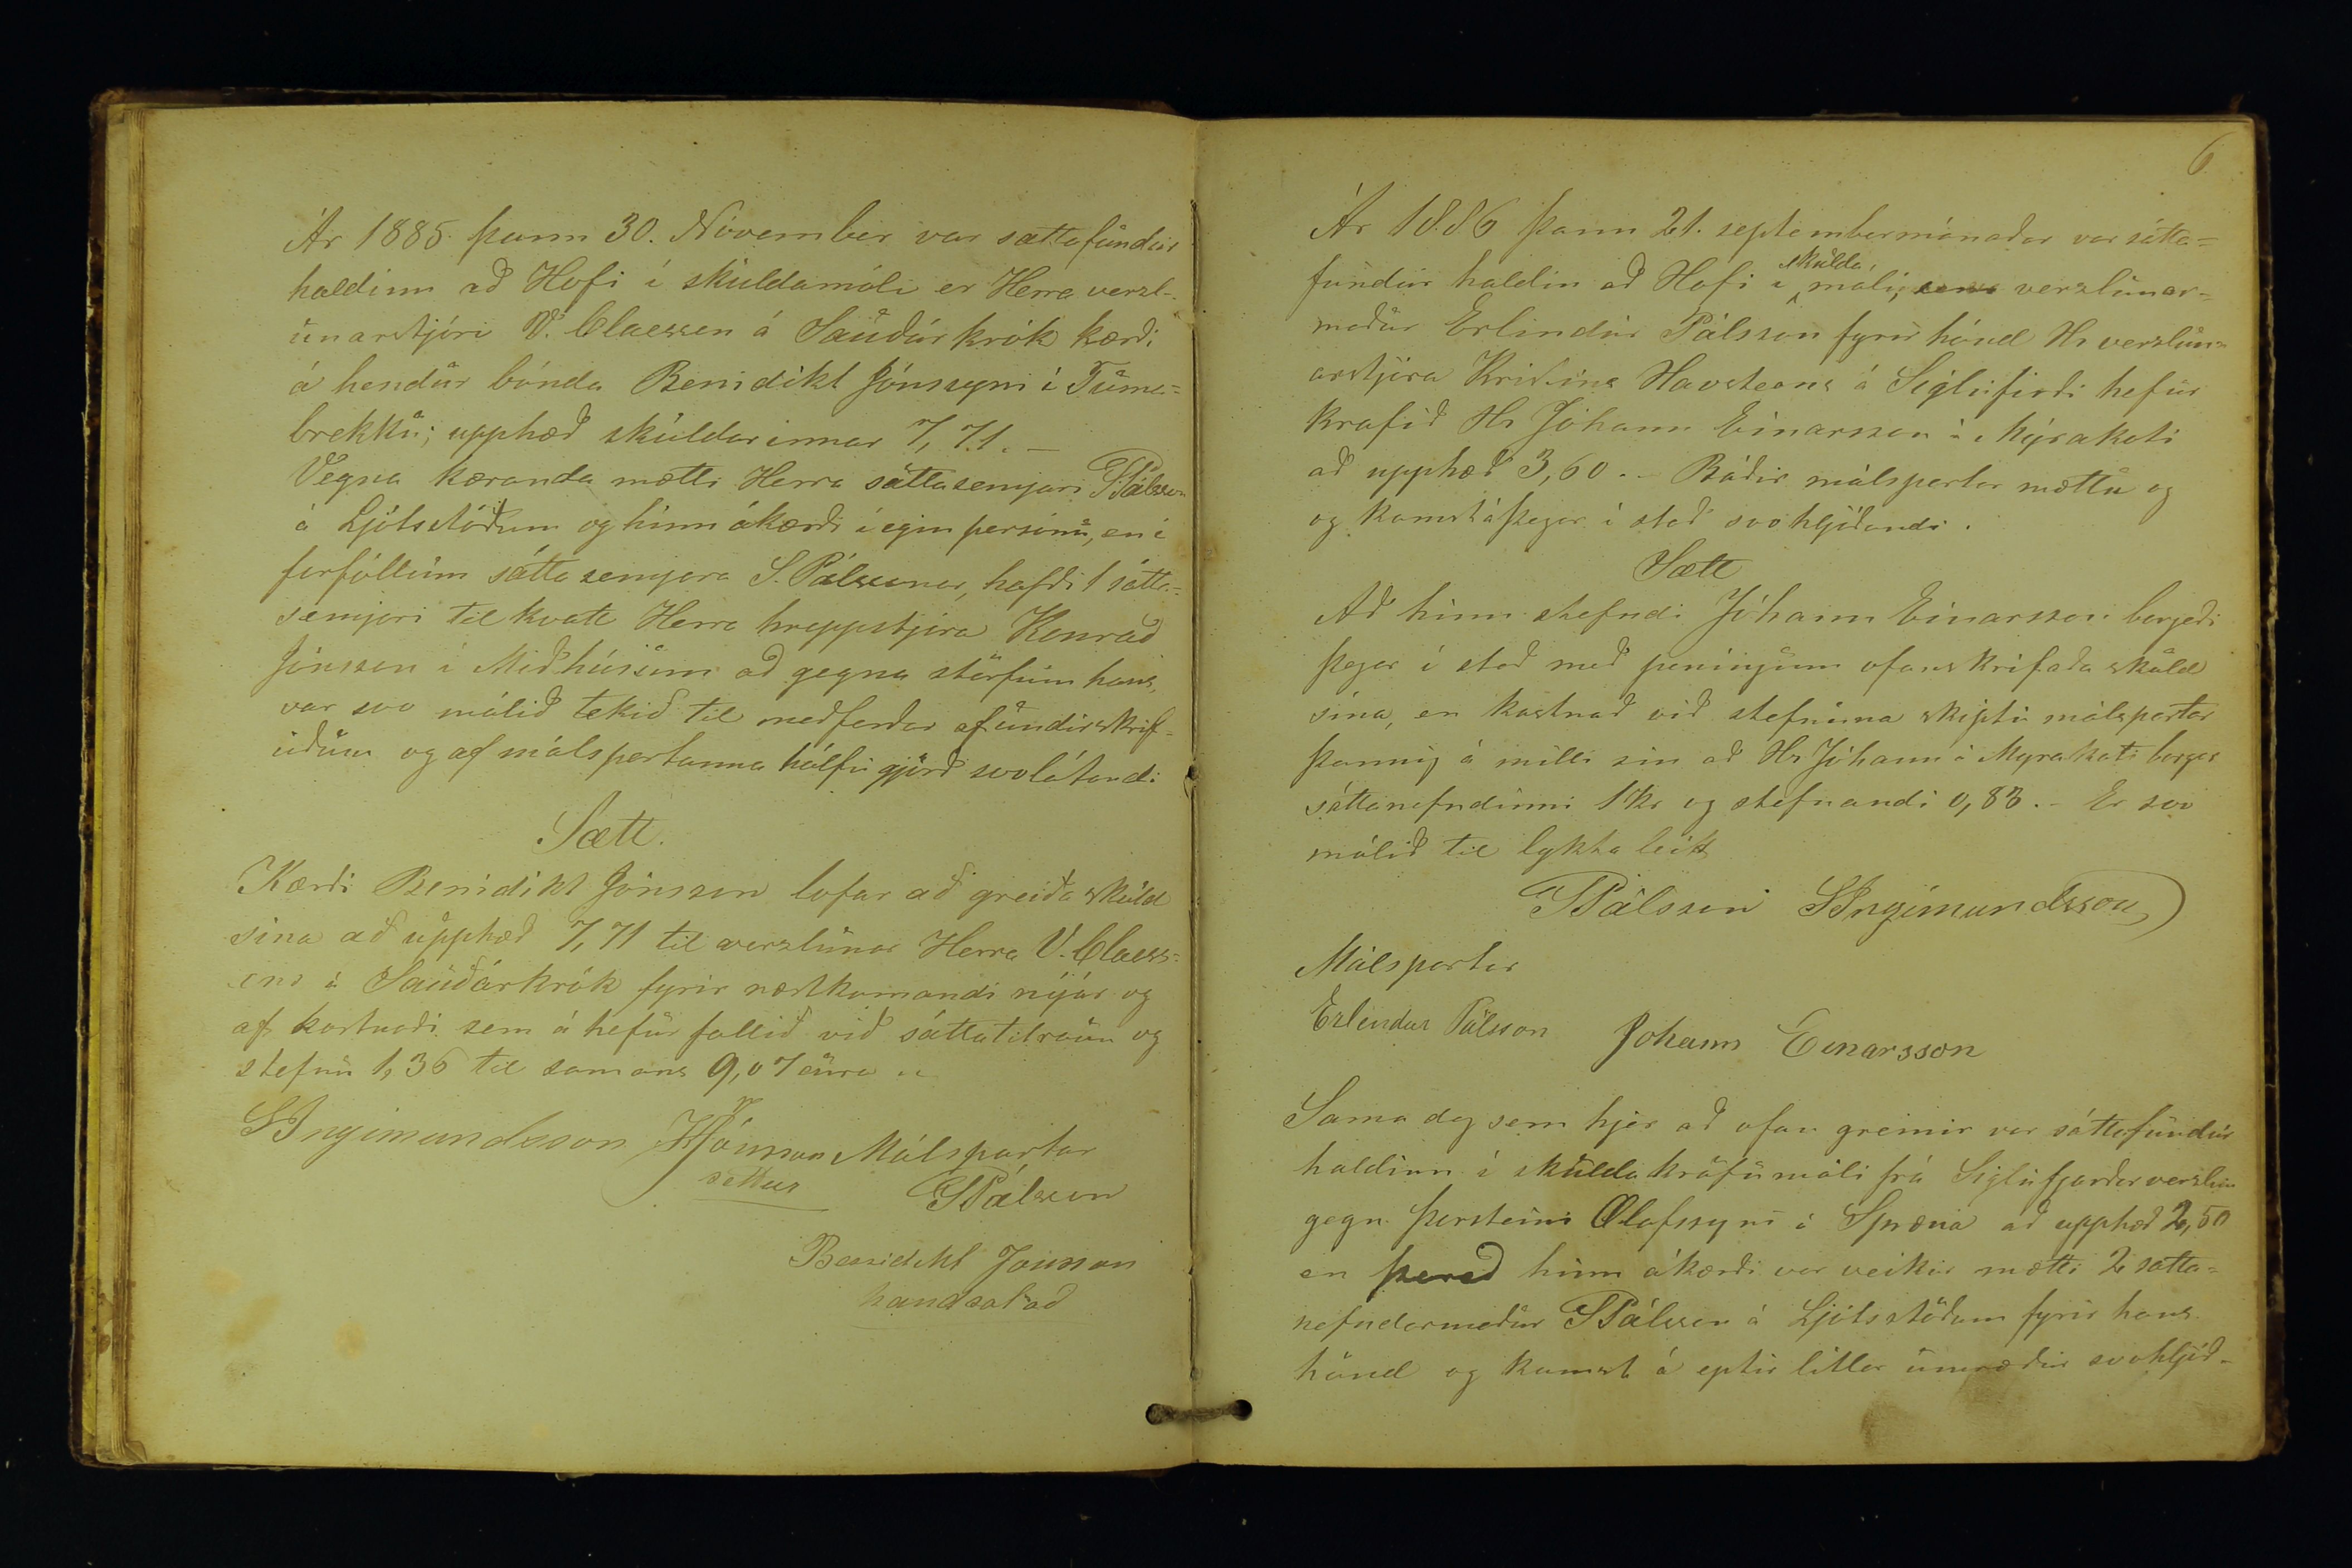 Ár 1885 þann 30. November var sættafundur
haldinn að Hofi í skuldamáli er Herra verzl-
unarstjóri V. Claessen á Sauðárkrók kærði
á hendur bónda Benidikt Jónssyni í Tuma-
brekku; upphæð skuldarinnar 7,71.-
Vegna kæranda mætti Herra sáttasemjari SPálsson
á Ljótsstöðum og hinn ákærði í egin personu, en í
forföllum sáttasemjara S. Pálssonar, hafði 1 sátta-
semjari til kvatt Herra hreppstjóra Konrað
Jónsson í Miðhúsum að gegna störfum hans,
var svo málið tekið til meðferðar af undirskrif-
uðum og af málspartanna hálfu gjörð svolátandi
Sætt.
Kærði Benidikt Jónsson lofar að greiða skuld
sína að upphæð 7,71 til verzlunar Herra V. Claess-
ens á Sauðárkrók fyrir næstkomandi nýjár og
af kostnaði sem á hefur fallið við sáttatilraun og
stefnu 1,36 til samans 9,07 aura "
SIngimundsson KJónsson Málspartar
settur SPálsson
Benidikt Jónsson
handsalað
6
Ár 1886 þann 21. septembermánaðar var sátta-
fundur haldin að Hofi í skulda máli, sem verzlunar-
maður Erlindur Pálsson fyrir hönd Hr verzlun-
arstjóra Kristins Havsteens á Siglufirði hefur
krafið Hr Jóhann Einarsson á Mýrakoti
að upphæð 3,60.- Báðir málspartar mættu og
og komst á þegar í stað svohljóðandi.
Sætt
Að hinn stefndi Jóhann Einarsson borgaði
þegar í stað með peningum ofanskrifaða skuld
sína, en kostnað við stefnuna skiptu málspartar
þannig á milli sín að Hr Jóhann á Myrakoti borgar
sáttanefndinni 1 kr og stefnandi 0,83.- Er svo
málið til lykta leitt
SPálsson SIngimundsson
Málspartar
Erlendur Pálsson Johann Einarsson
Sama dag sem hjer að ofan greinir var sáttafundur
haldinn í skuldakröfumáli frá Siglufjarðarverzlun
gegn Þorsteini Olafssyni á Spæna að upphæð 2,50
en þareð hinn ákærði var veikur mætti 2 sátta-
nefndarmaður SPálsson á Ljótsstöðum fyrir hans
hönd og komst á eptir litlar umræður svohljóð-